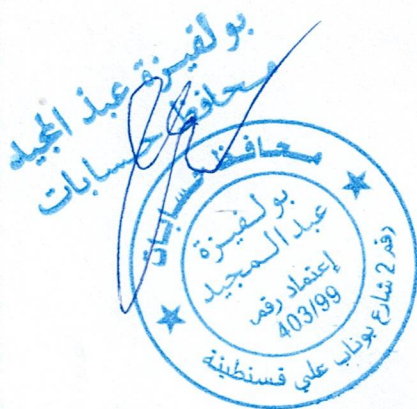 بولفيزة عبد المجيد
محافظ حسابات
محافظ حسابات
بولفيزة
عبد المجيد
إعتماد رقم
403/99
رقم 2 شارع بوناب علي قسنطينة